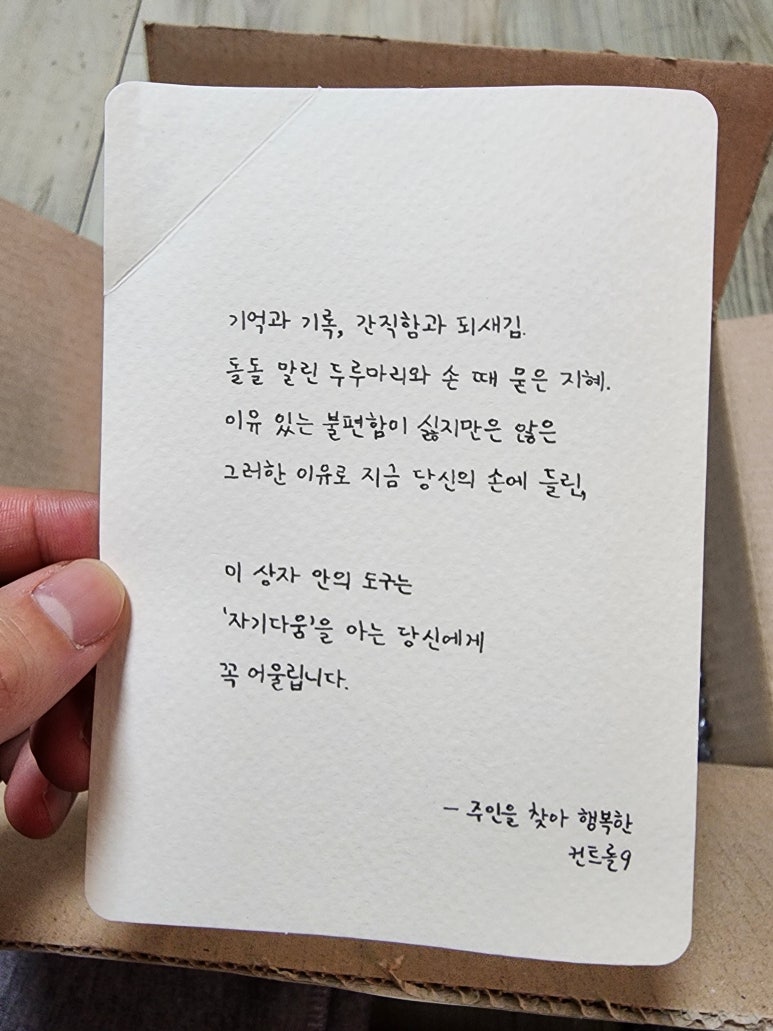 기억과 기록, 간직함과 되새김.
돌돌 말린 두루마리와 손 때 묻은 지혜.
이유 있는 불편함이 싫지만은 않은
그러한 이유로 지금 당신의 손에 들린,
이 상자 안의 도구는
'자기다움'을 아는 당신에게
꼭 어울립니다.
- 주인을 찾아 행복한
컨트롤9